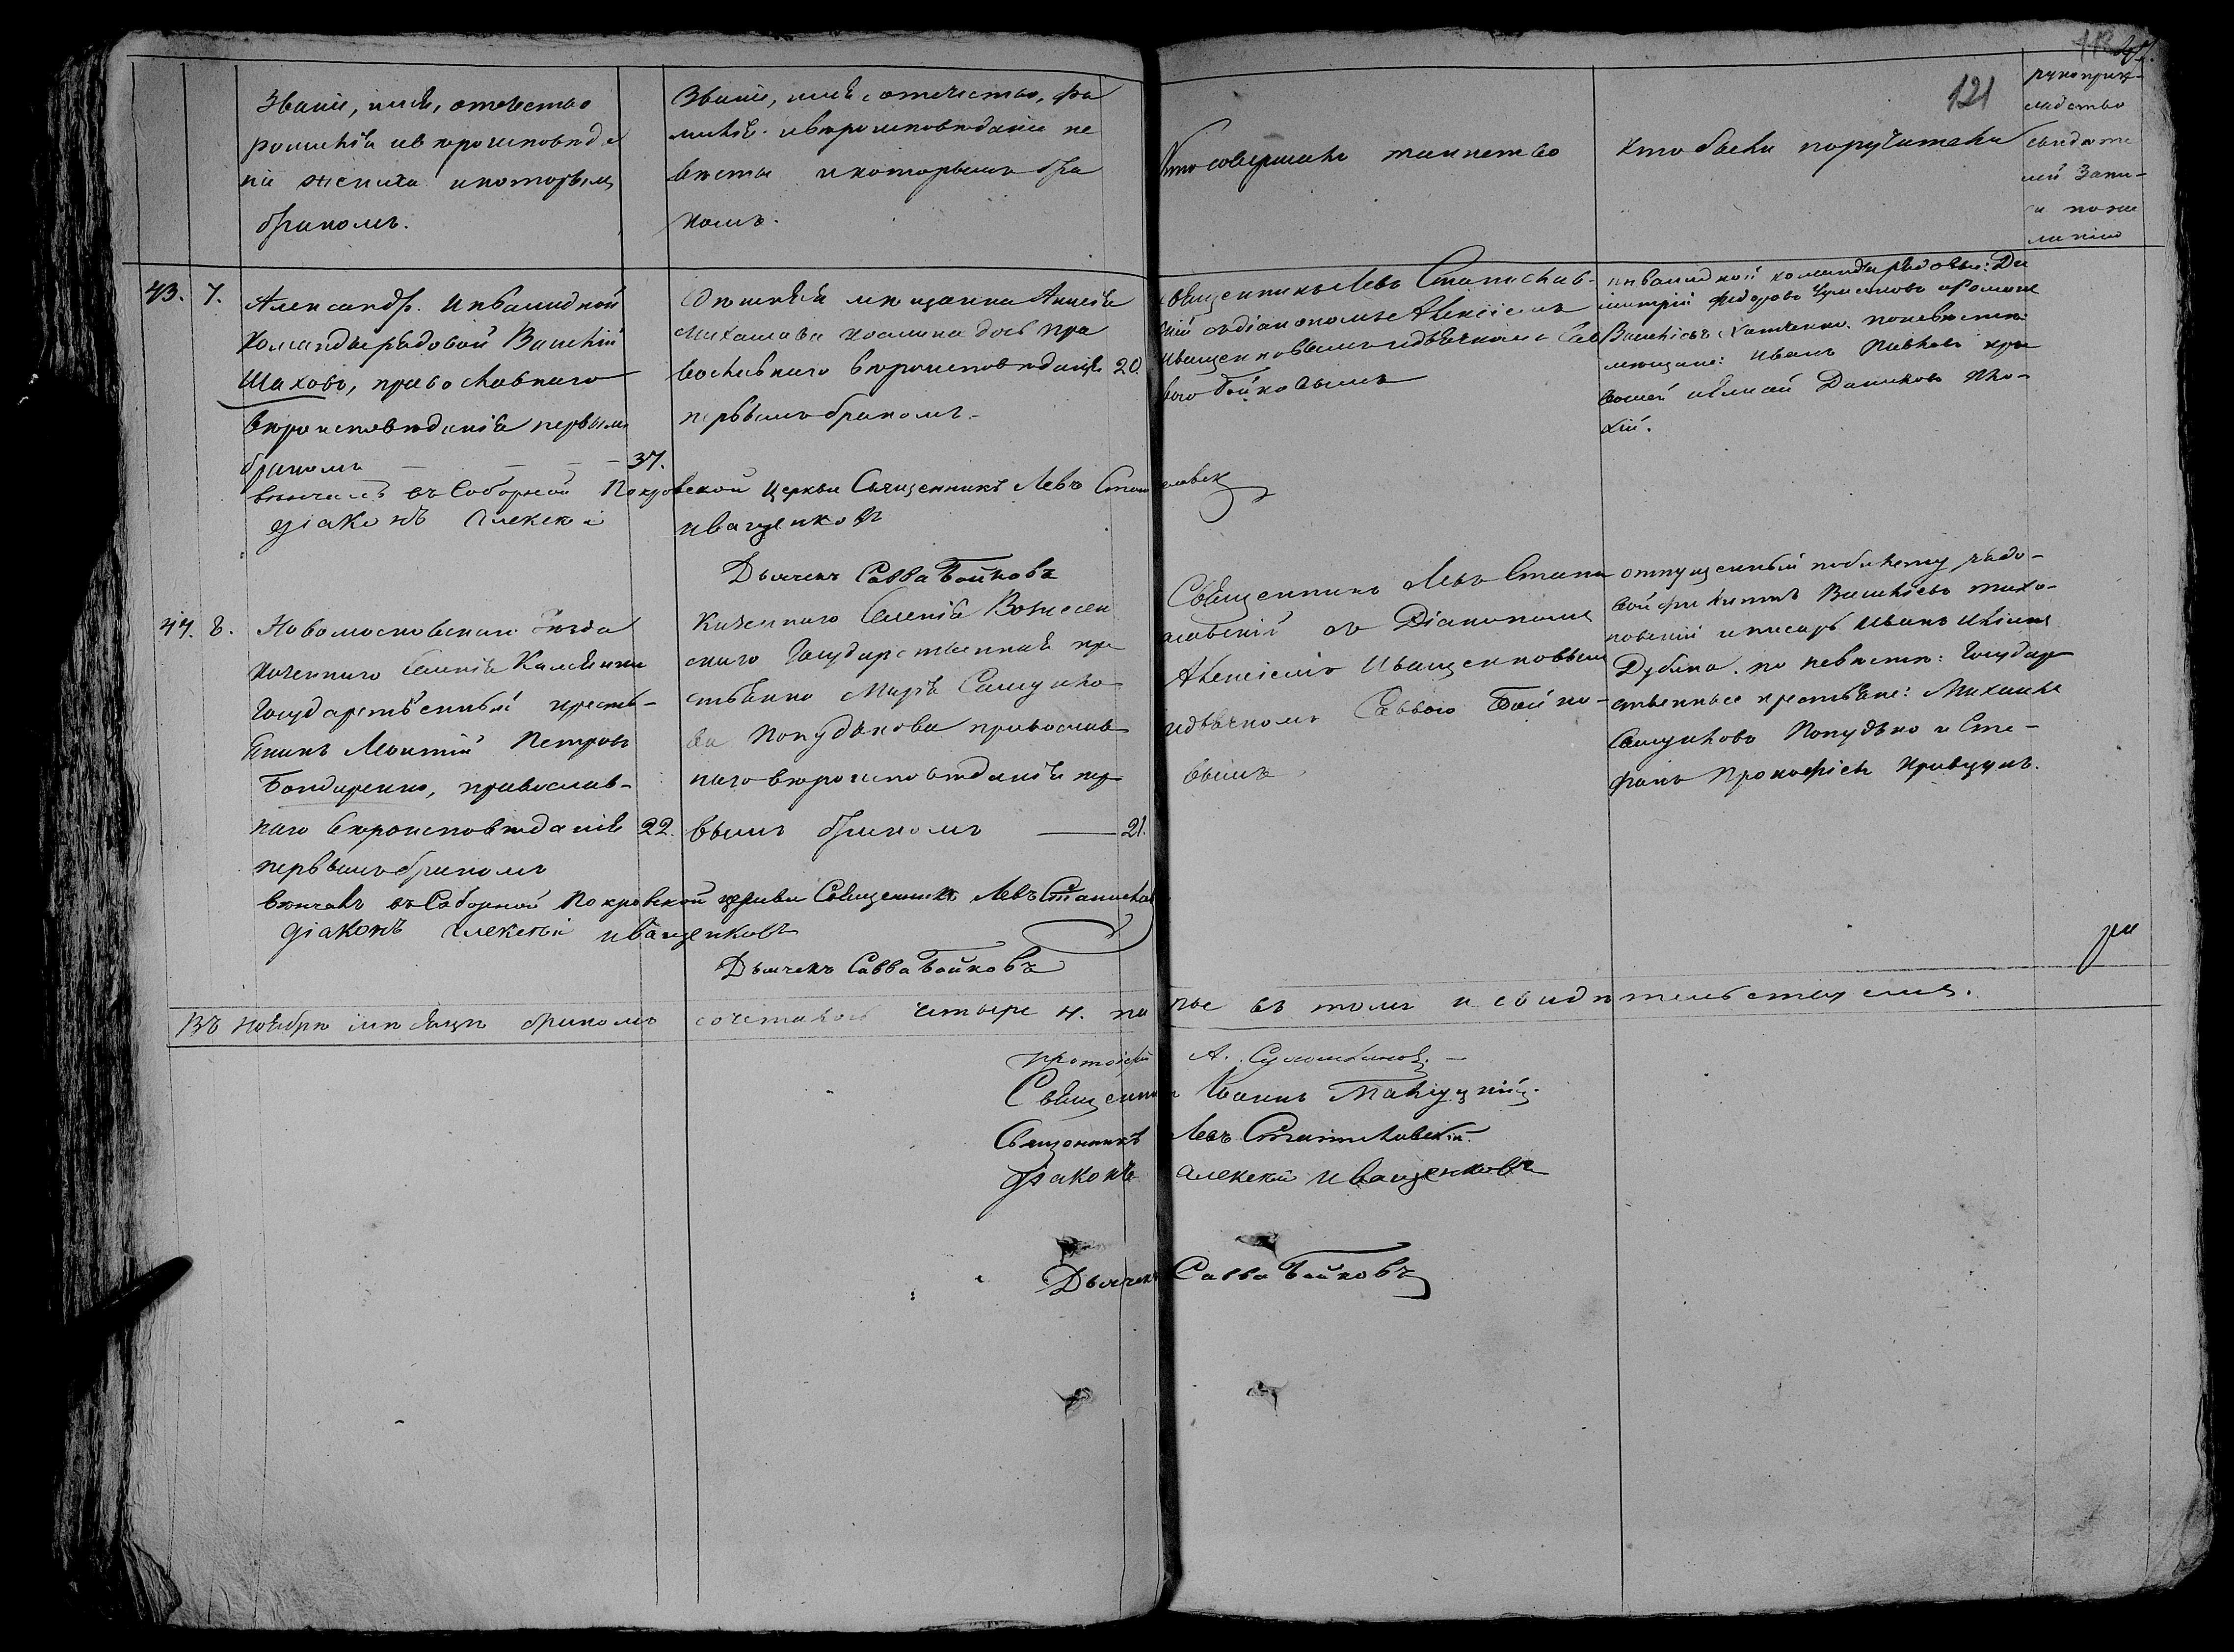 121
Званіе, имя, отечество
фамилія и вѣроисповѣда
ніе жениха и которымъ
бракомъ.
Званіе, имя, отечество, фа
милія и вѣроисповѣданіе не
вѣсты и которымъ бра
комъ.
Кто совершалъ таинство
Кто были поручители
рукоприк-
ладство
свидѣте
лей Запи-
си по же
ланію
43. 7.
Александр. Инвалидной
Команды рядовой Василій
Шаховъ, православнаго
вѣроисповѣданія первымъ
бракомъ — — — — 37.
Здѣшняя мѣщанка
Михайлова дочь пра
вославнаго вѣроисповѣданія 20.
первымъ бракомъ.
Священникъ Левъ Станислав-
скій съ діакономъ Алексіемъ
Иващенковымъ и дьячкомъ Сав
вою Бойковымъ
инвалидной команды рядовые: Ди
митрій Федоровъ
Васильевъ по невѣстѣ:
мѣщане: Иванъ Павловъ
Даниловъ
вѣнчалъ въ Соборной Покровской Церкви Священникъ Левъ Станиславск
діаконъ Алексей Иващенковъ
Дьячекъ Савва Бойковъ
44. 8.
Новомосковскаго уѣзда
казеннаго селенія
Государственный кресть-
янинъ Петровъ
Бондаренко, православ-
наго вѣроисповѣданія 22.
первымъ бракомъ
Казеннаго Селенія Вознесен
скаго Государственная кре
стьянка Марія Самуйло
ва Попудькова православ
наго вѣроисповѣданія пер
вымъ бракомъ — 21.
Священникъ Левъ Стани
славскій съ Діакономъ
Алексіемъ Иващенковым
и дьячкомъ Саввою Бойко-
вымъ
отпущенный по билету рядо-
вой Филиппъ Васильевъ Тихо-
новскій и писарь Иванъ Ильинъ
Дубина. по невѣстѣ: Государ
ственные крестьяне: Михаилъ
Самуйловъ Попудько и Сте-
фанъ Прокофьевъ Кривцунъ.
вѣнчалъ въ Соборной Покровской церкви Священникъ Левъ Станислав
діаконъ Алексей Иващенковъ
Дьячекъ Савва Бойковъ
Въ ноябрѣ мѣсяцѣ бракомъ сочеталось четыре 4. па ры въ томъ и свидѣтельствуемъ.
Протоіерей А.
Священникъ Іоаннъ
Священникъ Левъ Станиславскій.
Діаконъ Алексей Иващенковъ
Дьячекъ Савва Бойковъ